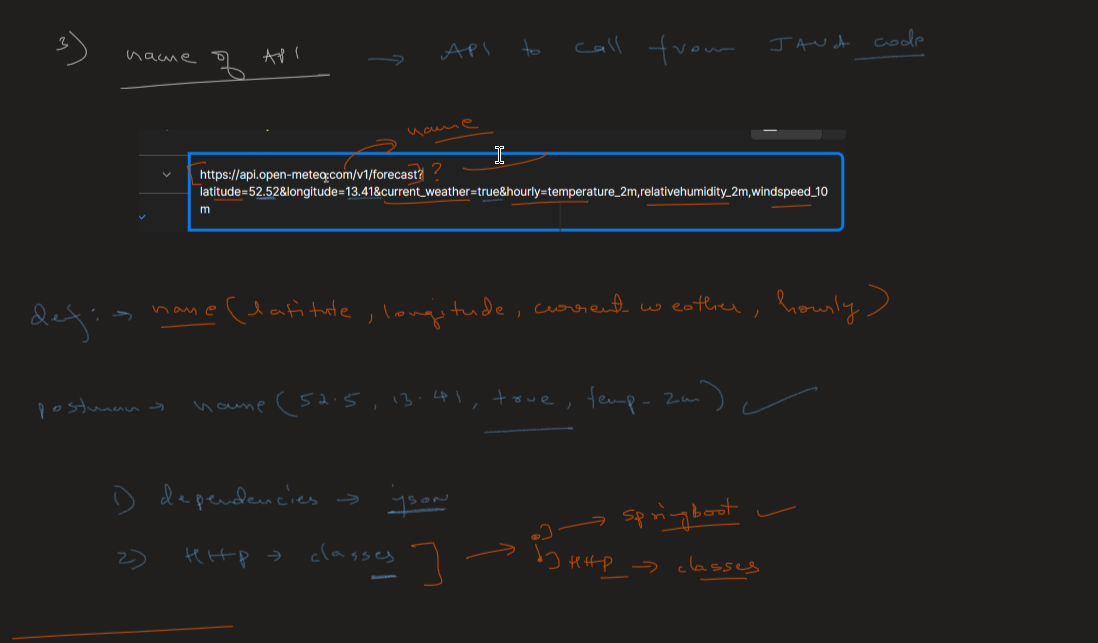 3) name of API → API to call from JAVA code
name
https://api.open-meteo.com/v1/forecast? ??
latitude=52.52&longitude=13.41&current_weather=true&hourly=temperature_2m,relativehumidity_2m,windspeed_10
m
def: → name (latitute, longitude, current-weather, hourly)
postman → name (52.5, 13.41, true, temp-2m)
1) dependencies → json
springboot
2) HTTP → classes
HTTP → classes